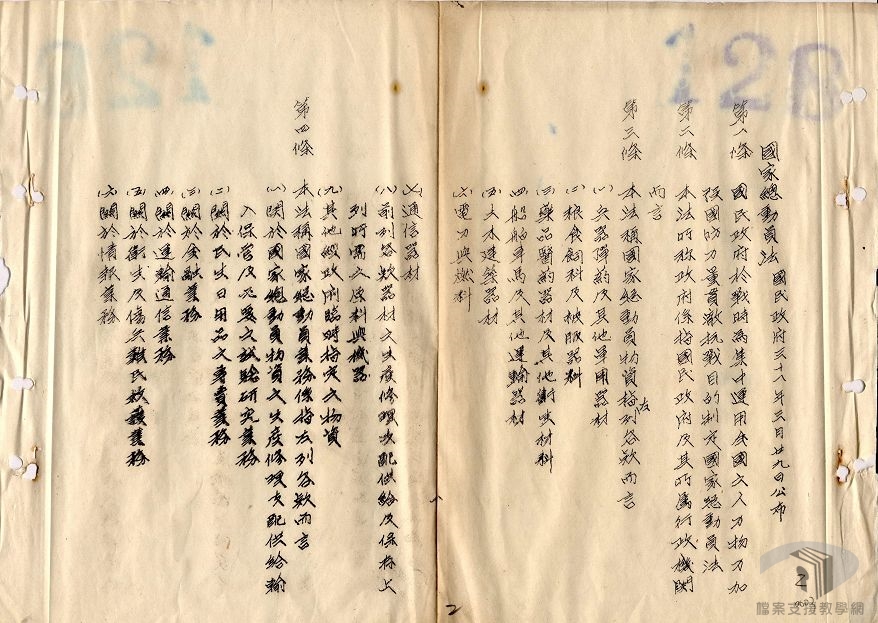 128
國家總動員法 國民政府三十一年三月廿九日公布
第一條 國民政府於戰時為集中運用全國之人力物力加
強國防力量貫澈抗戰目的制定國家總動員法
第二條 本法所稱政府係指國民政府及其所屬行政機關
而言
第三條 本法稱國家總動員物資指左列各款而言
(一)兵器彈藥及其他軍用器材
(二)粮食飼料及被服器料
(三)藥品醫葯器材及其他衛生材料
(四)船舶車馬及其他運輸器材
(五)土木建築器材
(六)電力與燃料
(七)通信器材
(八)前列各款器材之生產修理支配供給及保存上
列時需之原料與機器
(九)其他經政府臨時指定之物資
第四條 本法稱國家總動員業務係指左列各款而言
(一)關於國家總動員物資之生產修理支配供給輸
入保管及必要之試驗研究業務
(二)關於民生日用品之專賣業務
(三)關於金融業務
(四)關於運輸通信業務
(五)關於衛生及傷兵難民救護業務
(六)關於情報業務
2
2
檔案支援教學網